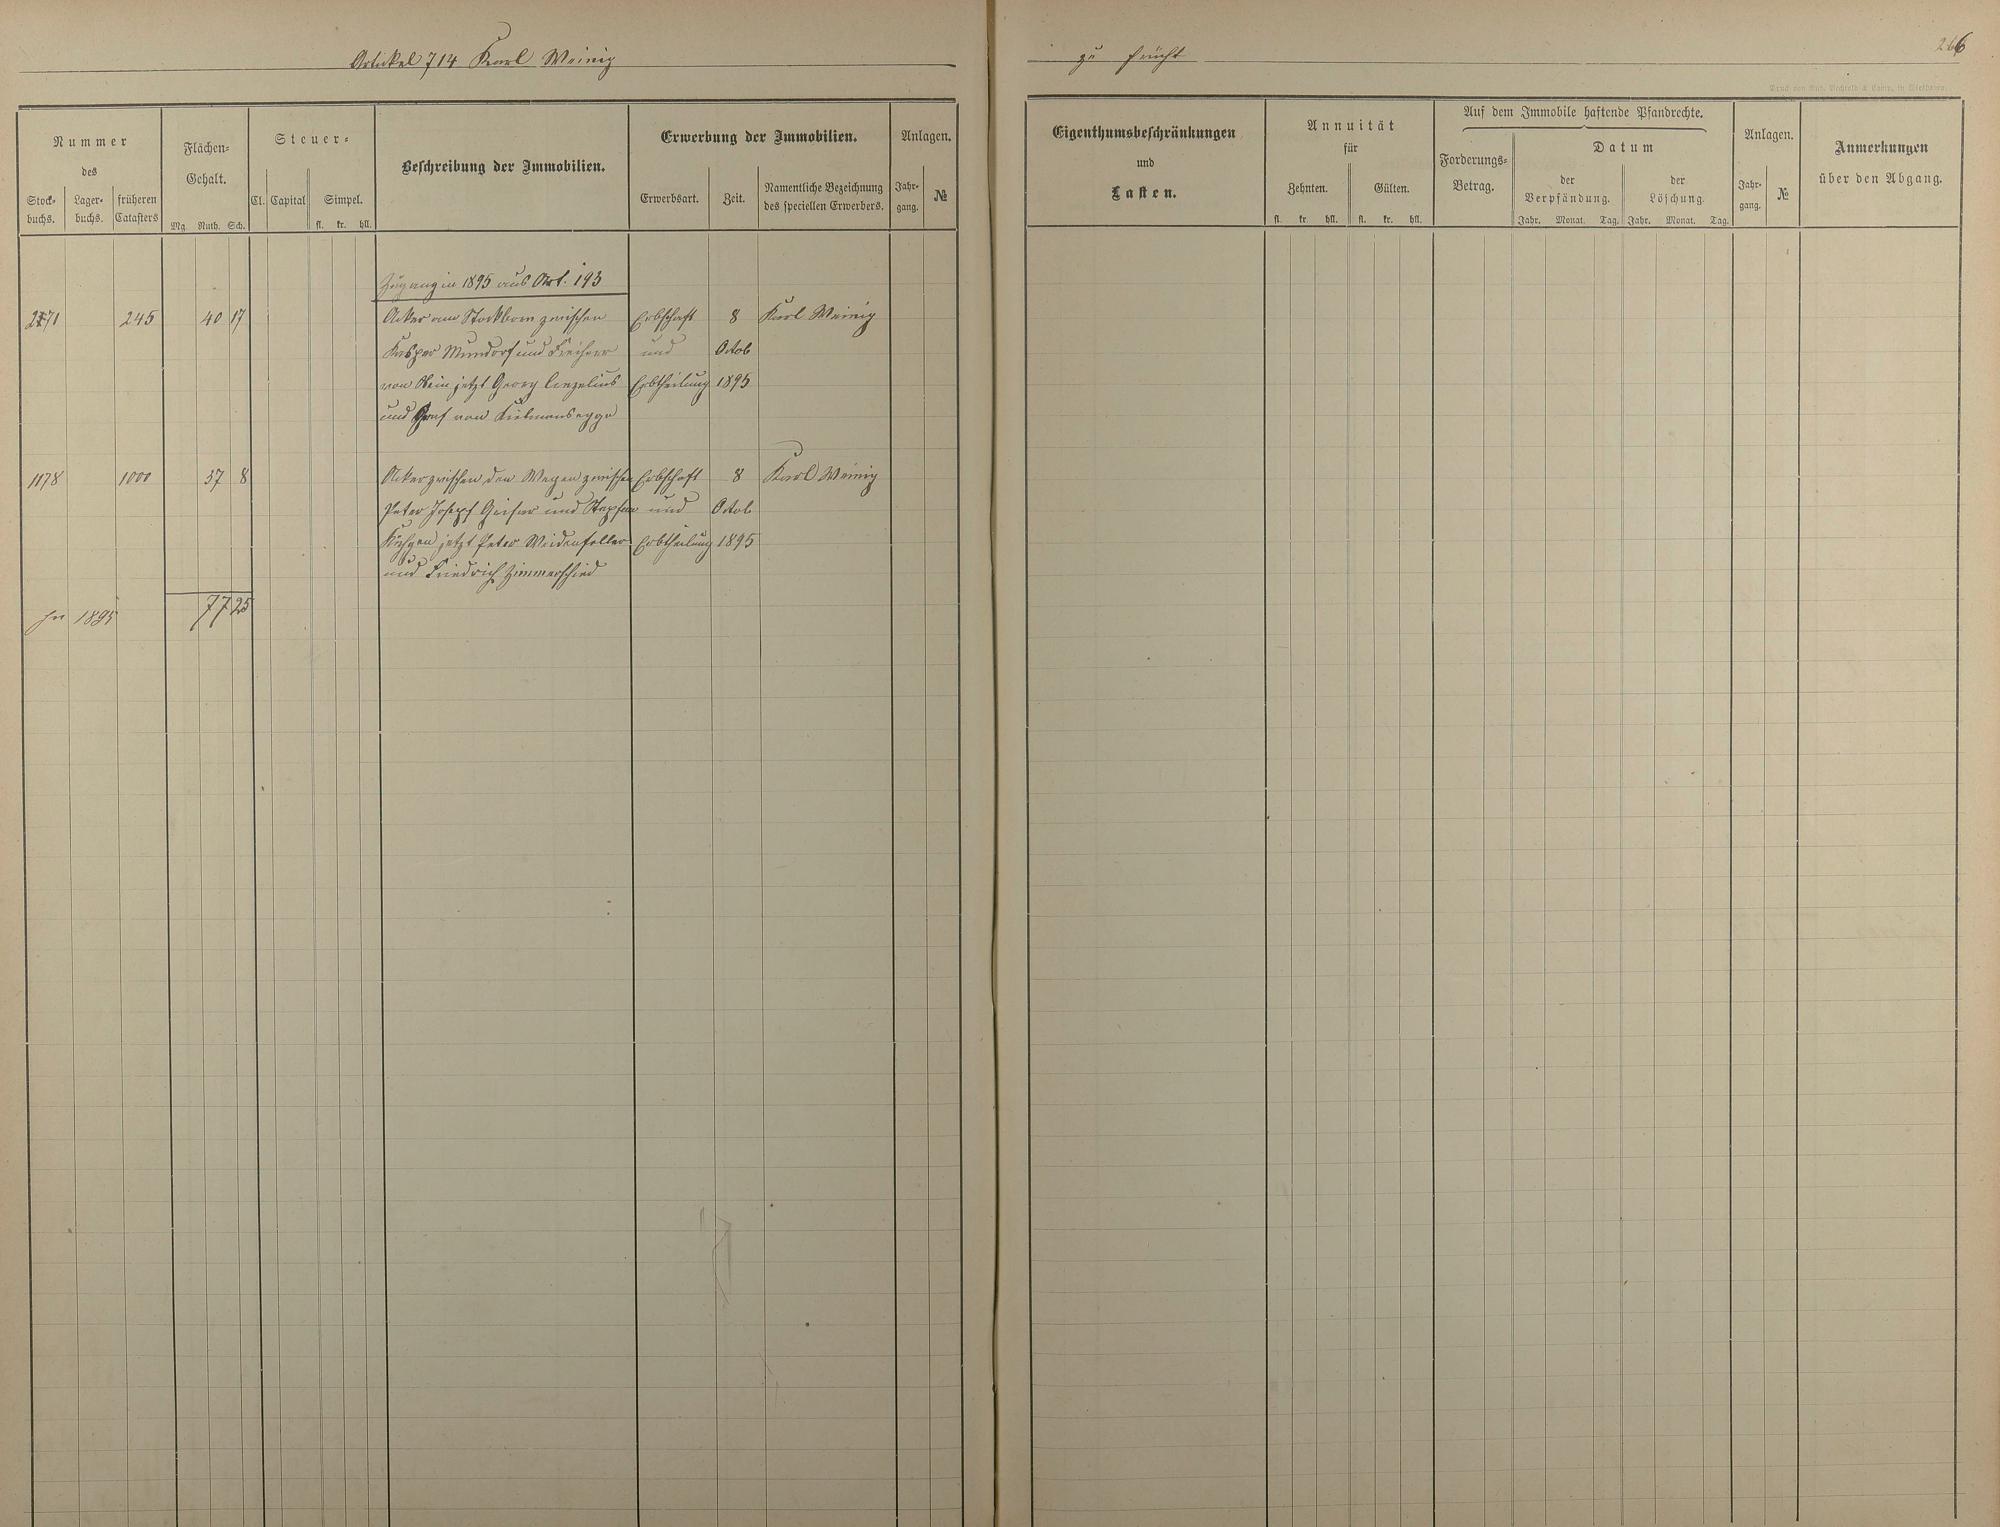 Artikel 714 Karl Weinig
zu Frücht
266
Druck von Rud. Bechtold & Comp. in Wiesbaden.
Nummer
des
Stock-
buchs.
Lager-
buchs.
früheren
Catasters
Flächen-
Gehalt.
Mg. Ruth. Sch.
Steuer-
Cl. Capital Simpel.
fl. kr. hll.
Beschreibung der Immobilien.
Erwerbung der Immobilien.
Erwerbsart. Zeit.
Namentliche Bezeichnung
des speciellen Erwerbers.
Anlagen.
Jahr-
gang.
№
Eigenthumsbeschränkungen
und
Lasten.
Annuität
für
Zehnten. Gülten.
fl. kr. hll. fl. kr. hll.
Auf dem Immobile haftende Pfandrechte.
Forderungs-
Betrag.
Datum
der
Verpfändung.
der
Löschung.
Jahr. Monat. Tag. Jahr. Monat. Tag.
Anlagen.
Jahr-
gang.
№
Anmerkungen
über den Abgang.
Zugang in 1895 aus Art. 193
2171 245 40 17 Acker am Stockborn zwischen Erbschaft 8 Karl Weinig
Kasper Mundorf und Freiherr und Octob
von Stein jetzt Georg Conzelius Erbtheilung 1895
und Graf von Kielmansegge
1178 1000 37 8 Acker zwischen den Wegen zwischen Erbschaft 8 Karl Weinig
Peter Josepf Geiser und Stephan und Octob
jetzt Peter Weidenfeller Erbtheilung 1895
und Friedrich Zimmerschied
pr 1895 77 25